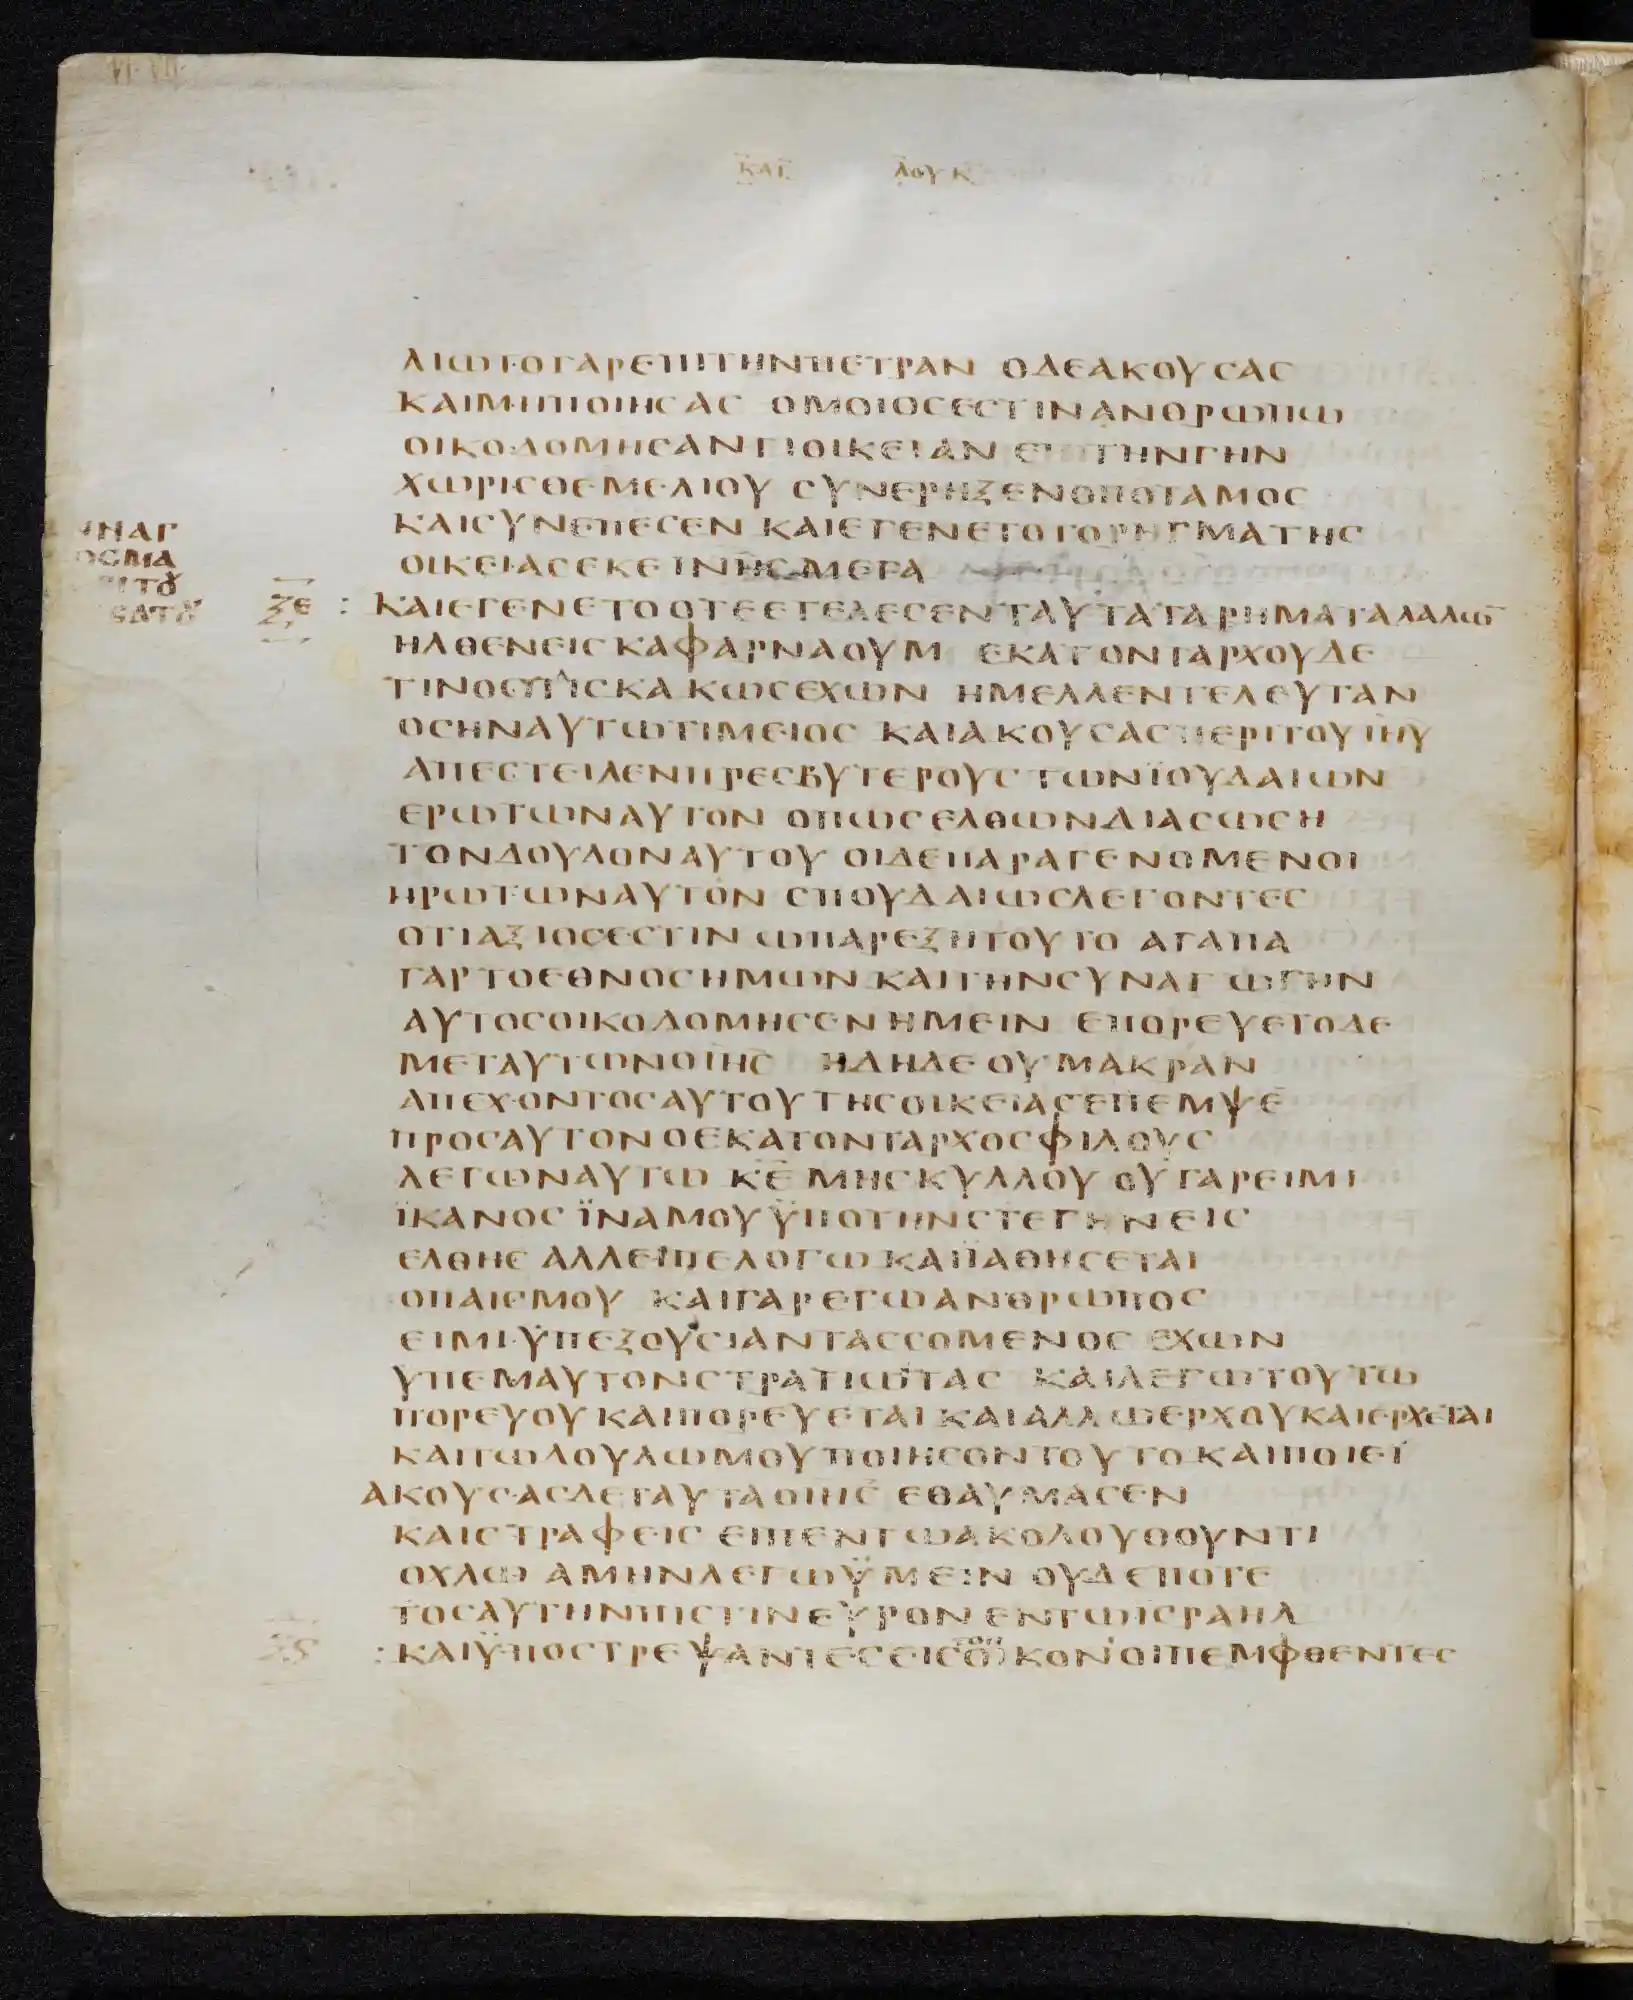 ΚΑΤ ΛΟΥΚ
ΛΙΩΤΟΓΑΡΕΠΙΤΗΝΠΕΤΡΑΝ ΟΔΕΑΚΟΥСΑС
ΚΑΙΜΗΠΟΙΗСΑС ΟΜΟΙΟСΕСΤΙΝΑΝΘΡΩΠΩ
ΟΙΚΟΔΟΜΗСΑΝΤΙΟΙΚΕΙΑΝ ΕΠΙΤΗΝΓΗΝ
ΧΩΡΙСΘΕΜΕΛΙΟΥ СΥΝΕΡΗΞΕΝΟΠΟΤΑΜΟС
ΚΑΙСΥΝΕΠΕСΕΝ ΚΑΙΕΓΕΝΕΤΟΤΟΡΗΓΜΑΤΗС
ΟΙΚΕΙΑСΕΚΕΙΝΗС
ΞΕ : ΚΑΙΕΓΕΝΕΤΟΟΤΕΕΤΕΛΕСΕΝΤΑΥΤΑΤΑΡΗΜΑΤΑΛΑΛΩ̅
ΗΛΘΕΝΕΙСΚΑΦΑΡΝΑΟΥΜ ΕΚΑΤΟΝΤΑΡΧΟΥΔΕ
ΤΙΝΟС ΚΑΚΩСΕΧΩΝ ΗΜΕΛΛΕΝΤΕΛΕΥΤΑΝ
ΟСΗΝΑΥΤΩΤΙΜΕΙΟС ΚΑΙΑΚΟΥСΑСΠΕΡΙΤΟΥΙ̅Η̅Υ̅
ΑΠΕСΤΕΙΛΕΝΠΡΕСΒΥΤΕΡΟΥС ΤΩΝΪΟΥΔΑΙΩΝ
ΕΡΩΤΩΝΑΥΤΟΝ ΟΠΩСΕΛΘΩΝΔΙΑСΩСΗ
ΤΟΝΔΟΥΛΟΝΑΥΤΟΥ ΟΙΔΕΠΑΡΑΓΕΝΟΜΕΝΟΙ
ΗΡΩΤΩΝΑΥΤΟΝ СΠΟΥΔΑΙΩСΛΕΓΟΝΤΕС
ΟΤΙΑΞΙΟСΕСΤΙΝ ΩΠΑΡΕΞΗΤΟΥΤΟ ΑΓΑΠΑ
ΓΑΡΤΟΕΘΝΟСΗΜΩΝ ΚΑΙΤΗΝСΥΝΑΓΩΓΗΝ
ΑΥΤΟСΟΙΚΟΔΟΜΗСΕΝΗΜΕΙΝ ΕΠΟΡΕΥΕΤΟΔΕ
ΜΕΤΑΥΤΩΝΟΙ̅Η̅С̅ ΗΔΗΔΕΟΥΜΑΚΡΑΝ
ΑΠΕΧΟΝΤΟСΑΥΤΟΥΤΗСΟΙΚΕΙΑСΕΠΕΜΨΕ
ΠΡΟСΑΥΤΟΝΟΕΚΑΤΟΝΤΑΡΧΟСΦΙΛΟΥС
ΛΕΓΩΝΑΥΤΩ Κ̅Ε̅ ΜΗСΚΥΛΛΟΥ ΟΥΓΑΡΕΙΜΙ
ΪΚΑΝΟС ΪΝΑΜΟΥΫΠΟΤΗΝСΤΕΓΗΝΕΙС
ΕΛΘΗС ΑΛΛΕΙΠΕΛΟΓΩ ΚΑΙΪΑΘΗСΕΤΑΙ
ΟΠΑΙСΜΟΥ ΚΑΙΓΑΡΕΓΩΑΝΘΡΩΠΟС
ΕΙΜΙΫΠΕΞΟΥСΙΑΝΤΑССΟΜΕΝΟС ΕΧΩΝ
ΥΠΕΜΑΥΤΟΝСΤΡΑΤΙΩΤΑС ΚΑΙΛΕΓΩΤΟΥΤΩ
ΠΟΡΕΥΟΥΚΑΙΠΟΡΕΥΕΤΑΙ ΚΑΙΑΛΛΩΕΡΧΟΥΚΑΙΕΡΧΕΤΑΙ
ΚΑΙΤΩΔΟΥΛΩΜΟΥΠΟΙΗСΟΝΤΟΥΤΟ ΚΑΙΠΟΙΕΙ
ΑΚΟΥСΑСΔΕΤΑΥΤΑΟΙ̅Η̅С̅ ΕΘΑΥΜΑСΕΝ
ΚΑΙСΤΡΑΦΕΙС ΕΙΠΕΝΤΩΑΚΟΛΟΥΘΟΥΝΤΙ
ΟΧΛΩ ΑΜΗΝΛΕΓΩΫΜΕΙΝ ΟΥΔΕΠΟΤΕ
ΤΟСΑΥΤΗΝΠΙСΤΙΝΕΥΡΟΝ ΕΝΤΩΙСΡΑΗΛ
ΞϚ : ΚΑΙΫΠΟСΤΡΕΨΑΝΤΕСΕΙС ΟΙΚΟΝΟΙΠΕΜΦΘΕΝΤΕС